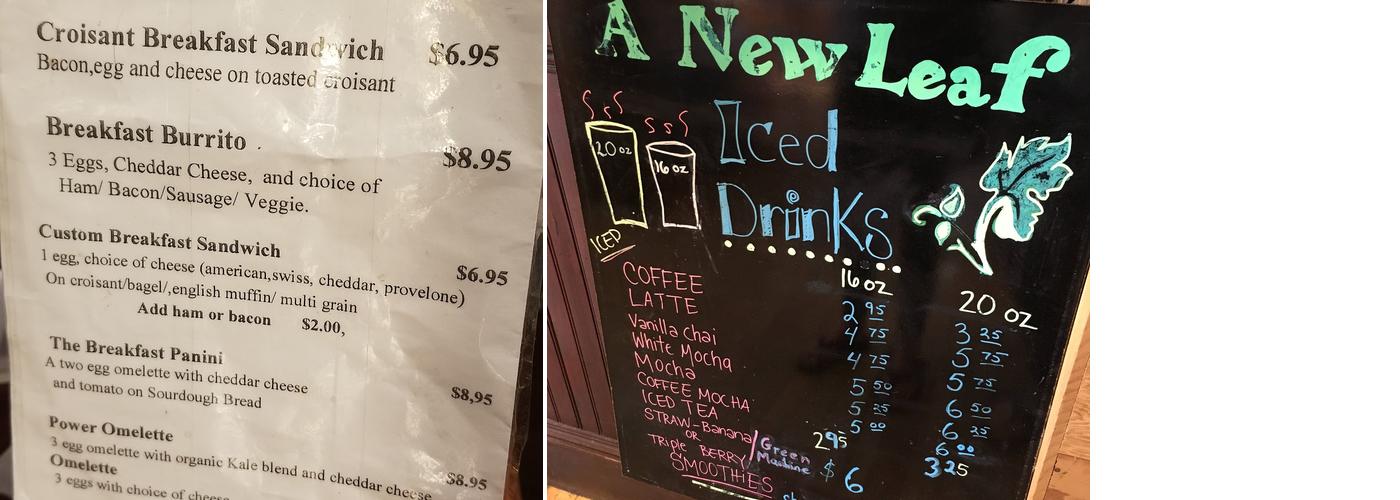 Croisant Breakfast Sandwich $6.95
Bacon,egg and cheese on toasted croisant
Breakfast Burrito $8.95
3 Eggs, Cheddar Cheese, and choice of
Ham/ Bacon/Sausage/ Veggie.
Custom Breakfast Sandwich
1 egg, choice of cheese (american,swiss, cheddar, provelone) $6.95
On croisant/bagel/,english muffin/ multi grain
Add ham or bacon $2.00,
The Breakfast Panini
A two egg omelette with cheddar cheese $8,95
and tomato on Sourdough Bread
Power Omelette
3 egg omelette with organic Kale blend and cheddar cheese $8.95
Omelette
3 eggs with choice of cheese
A New Leaf
Iced
Drinks
20 oz
16 oz
ICED
16 oz 20 oz
COFFEE 2 95 3 25
LATTE 4 75 5 75
Vanilla Chai 4 75 5 75
White Mocha 5 50 6 50
Mocha 5 25 6 25
COFFEE MOCHA 5 00 6 00
ICED TEA 2 95 3 25
STRAW-Banana/Green
OR Machine
Triple BERRY $6
SMOOTHIES